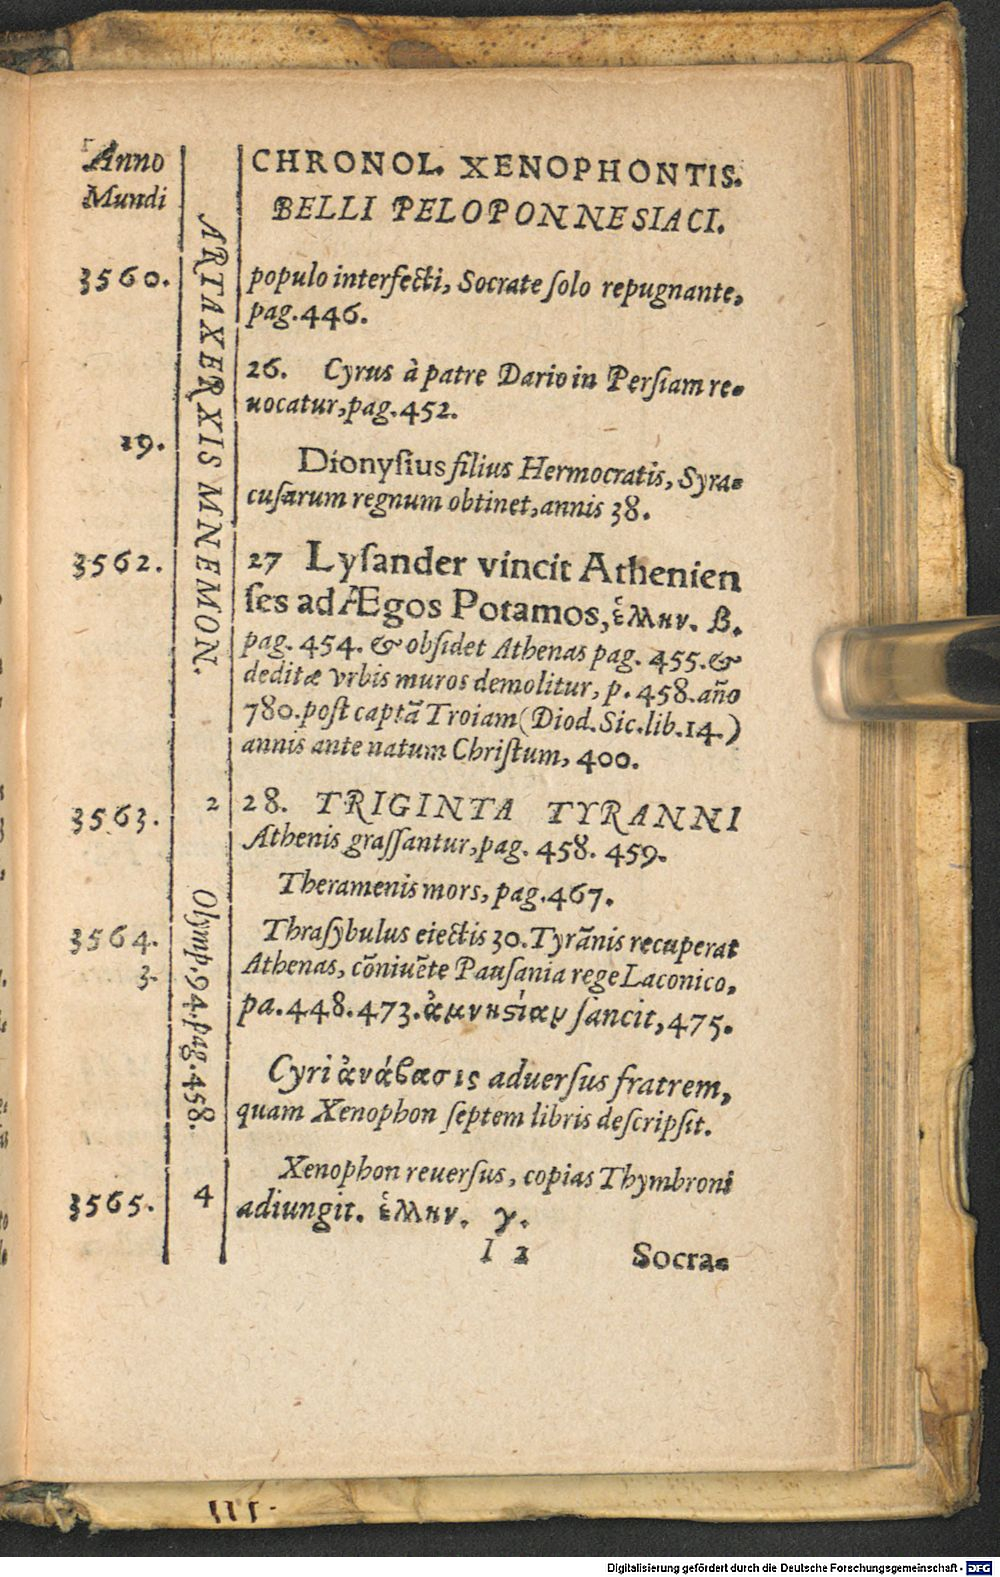 Anno
Mundi
CHRONOL. XENOPHONTIS.
BELLI PELOPONNESIACI.
ARTAXERXIS MNEMON.
3560.
populo interfecti, Socrate ſolo repugnante,
pag. 446.
26. Cyrus à patre Dario in Perſiam re-
uocatur, pag. 452.
19.
Dionyſius filius Hermocratis, Syra-
cuſarum regnum obtinet, annis 38.
3562.
27 Lyſander vincit Athenien
ſes ad Ægos Potamos, ἑλλην. β.
pag. 454. & obſidet Athenas pag. 455. &
deditæ vrbis muros demolitur, p. 458. año
780. poſt captã Troiam (Diod. Sic. lib. 14.)
annis ante natum Chriſtum, 400.
3563.
2
28. TRIGINTA TYRANNI
Athenis graſſantur, pag. 458. 459.
Theramenis mors, pag. 467.
Olymp. 94. pag. 458.
3564.
3.
Thraſybulus eiectis 30. Tyrãnis recuperat
Athenas, cõniuẽte Pauſania rege Laconico,
pa. 448. 473. ἀμνηστίαν ſancit, 475.
Cyri ἀνάβασις aduerſus fratrem,
quam Xenophon ſeptem libris deſcripſit.
3565.
4
Xenophon reuerſus, copias Thymbroni
adiungit. ἑλλην. γ.
I 2
Socra-
III
Digitalisierung gefördert durch die Deutsche Forschungsgemeinschaft - DFG